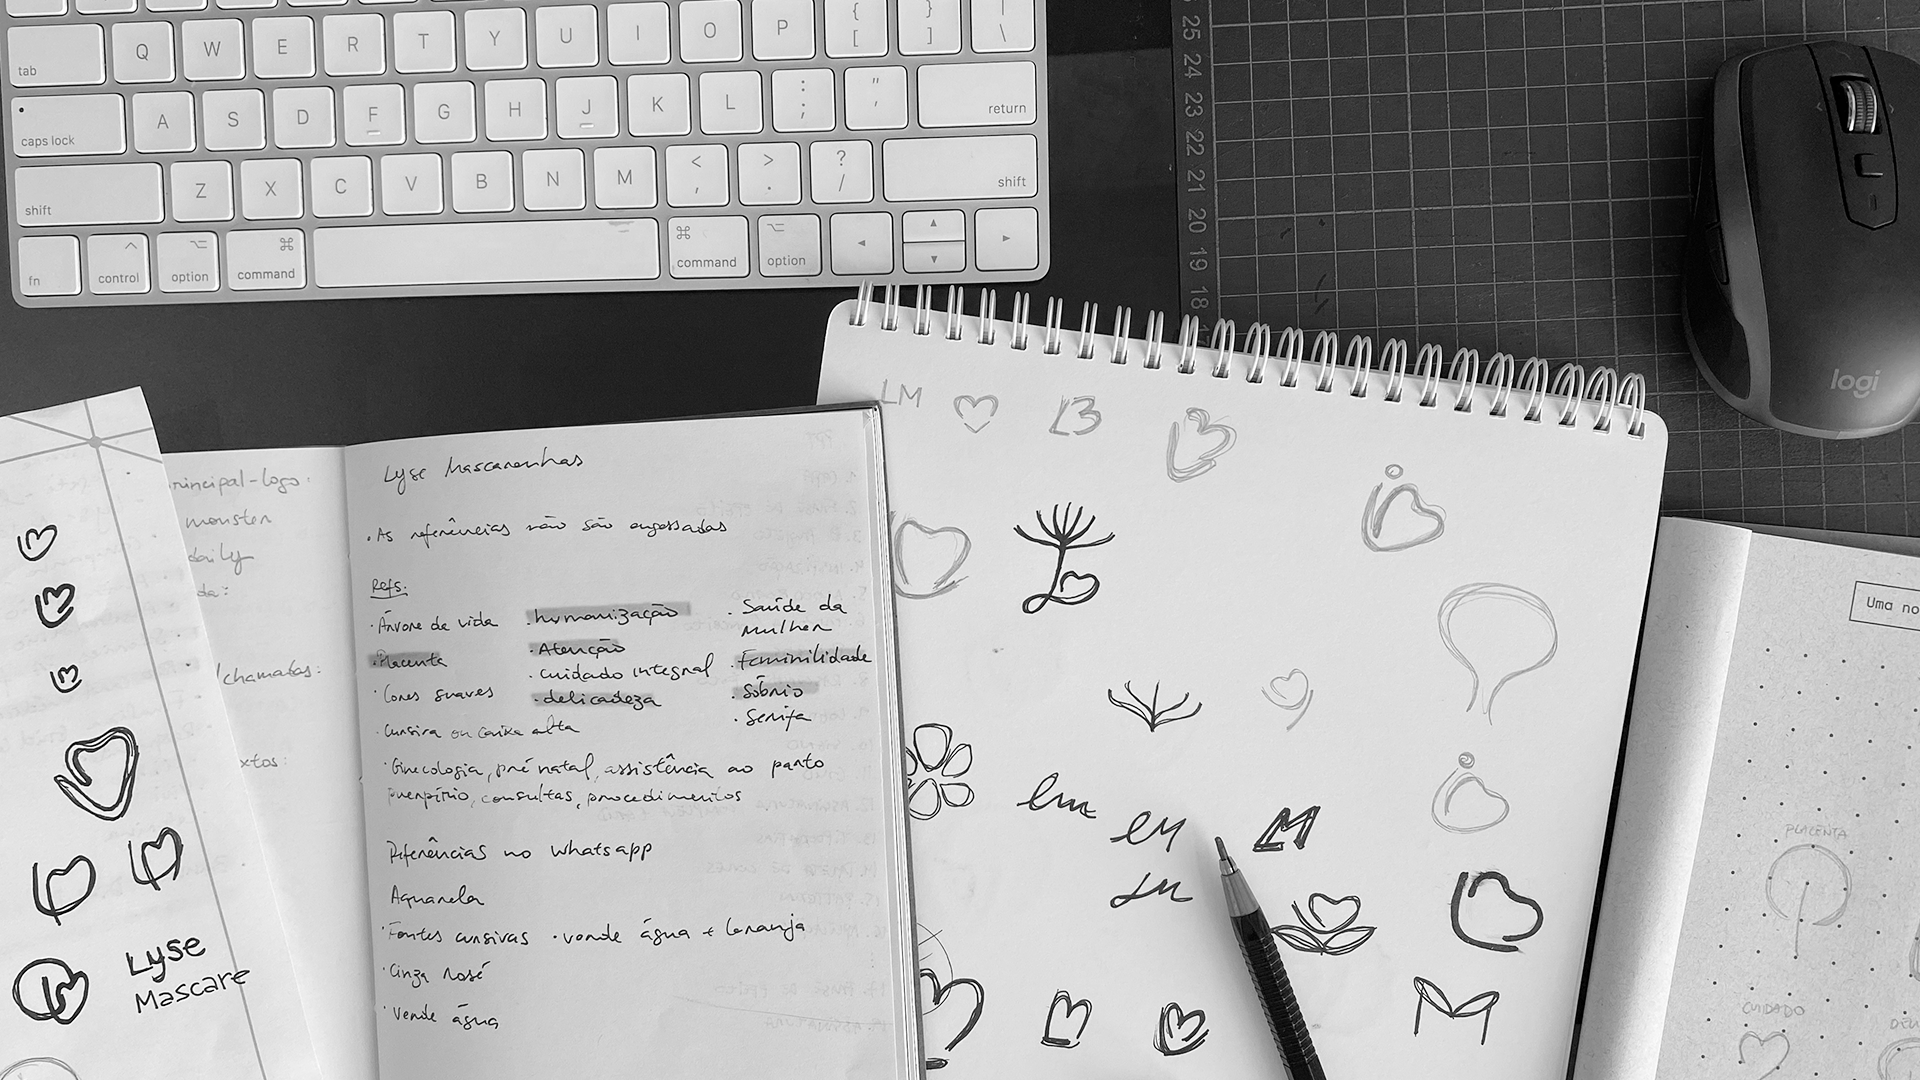 { }
Q W E R T Y U I O P [ ] \
tab
A S D F G H J K L : ; " '
caps lock
return
Z X C V B N M < , > . ? /
shift
shift
fn control option command
command option
25
24
23
22
21
20
19
18
logi
LM
Lyse Mascarenhas
principal-logo:
monster
daily
• As referências não são engessadas
Refs:
• Árvore de vida
• Placenta
• Cores suaves
• Cursiva ou caixa alta
• humanização
• Atenção
• cuidado integral
• delicadeza
• Saúde da
mulher
• Feminilidade
• Sóbrio
• Serifa
• Ginecologia, pré natal, assistência ao parto
puerpério, consultas, procedimentos
Referências no whatsapp
Aquarela
• Fontes cursivas • verde água + laranja
• Cinza rosé
• Verde água
/chamadas:
Lyse
Mascare
lm
LM
M
Uma no
PLACENTA
CUIDADO